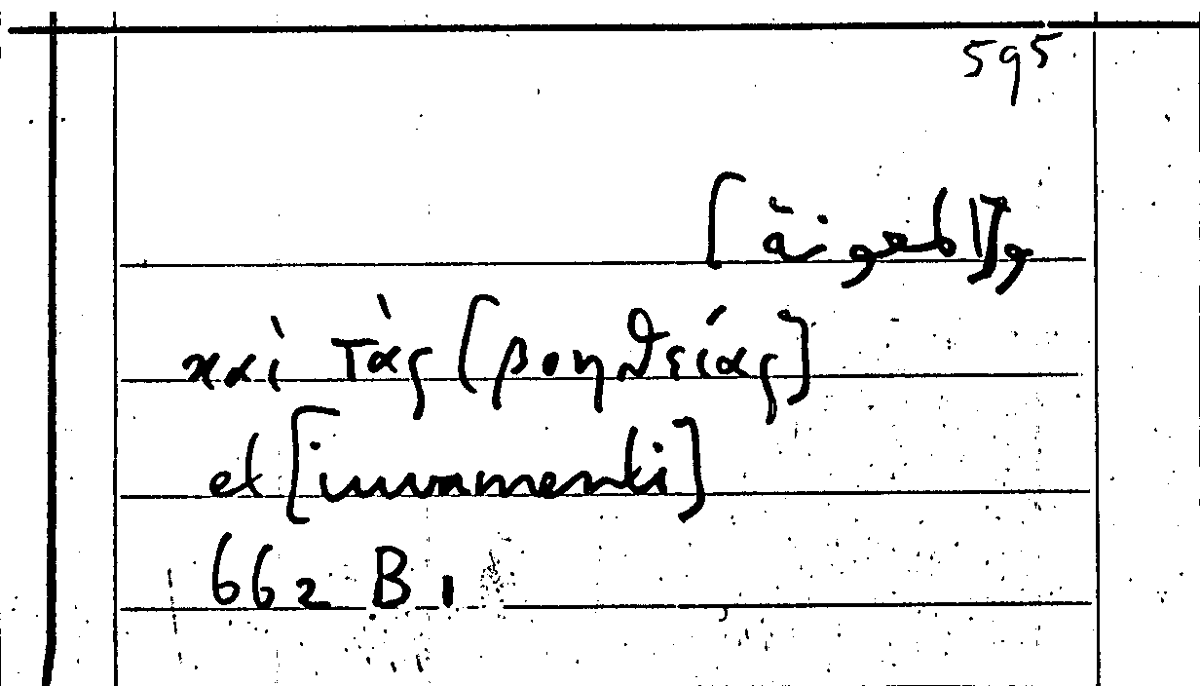 595
و[المعونة]
καὶ τὰς [βοηθείας]
et [iuvamenti]
662 B 1